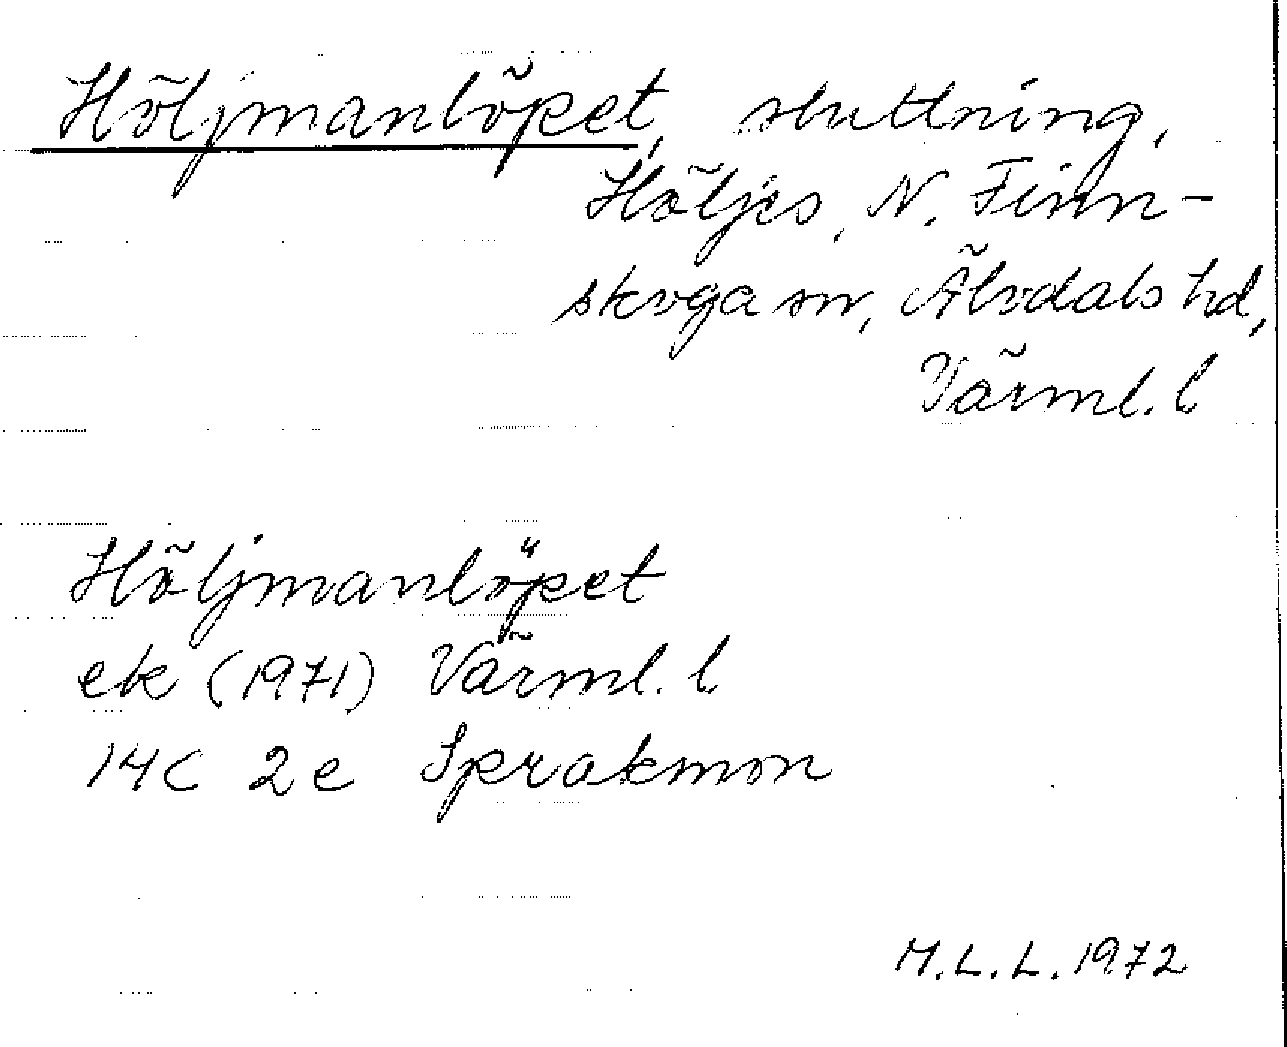 Höljmanlöpet, sluttning,
Höljes, N. Finn-
skoga sn, Älvdals hd,
Värml. l
Höljmanlöpet
ek (1971) Värml. l.
14C 2e Sprakmon
M.L.L. 1972